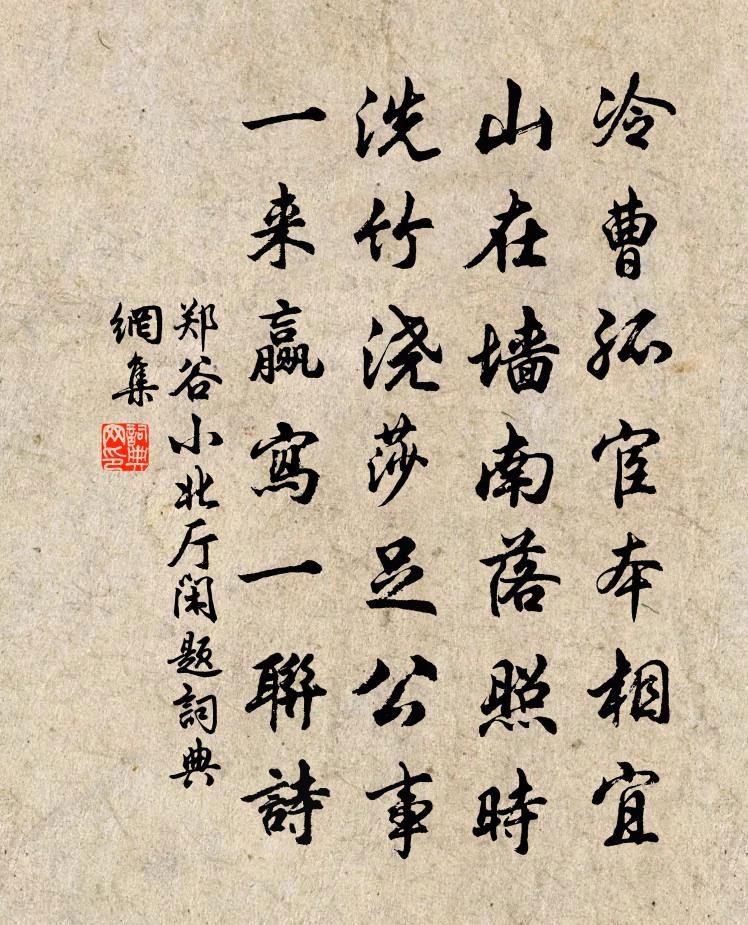 冷曹孤宦本相宜
山在墙南落照時
洗竹浇莎足公事
一来赢寫一聯詩
郑谷小北厅閑题詞典
網集
詞典
网印